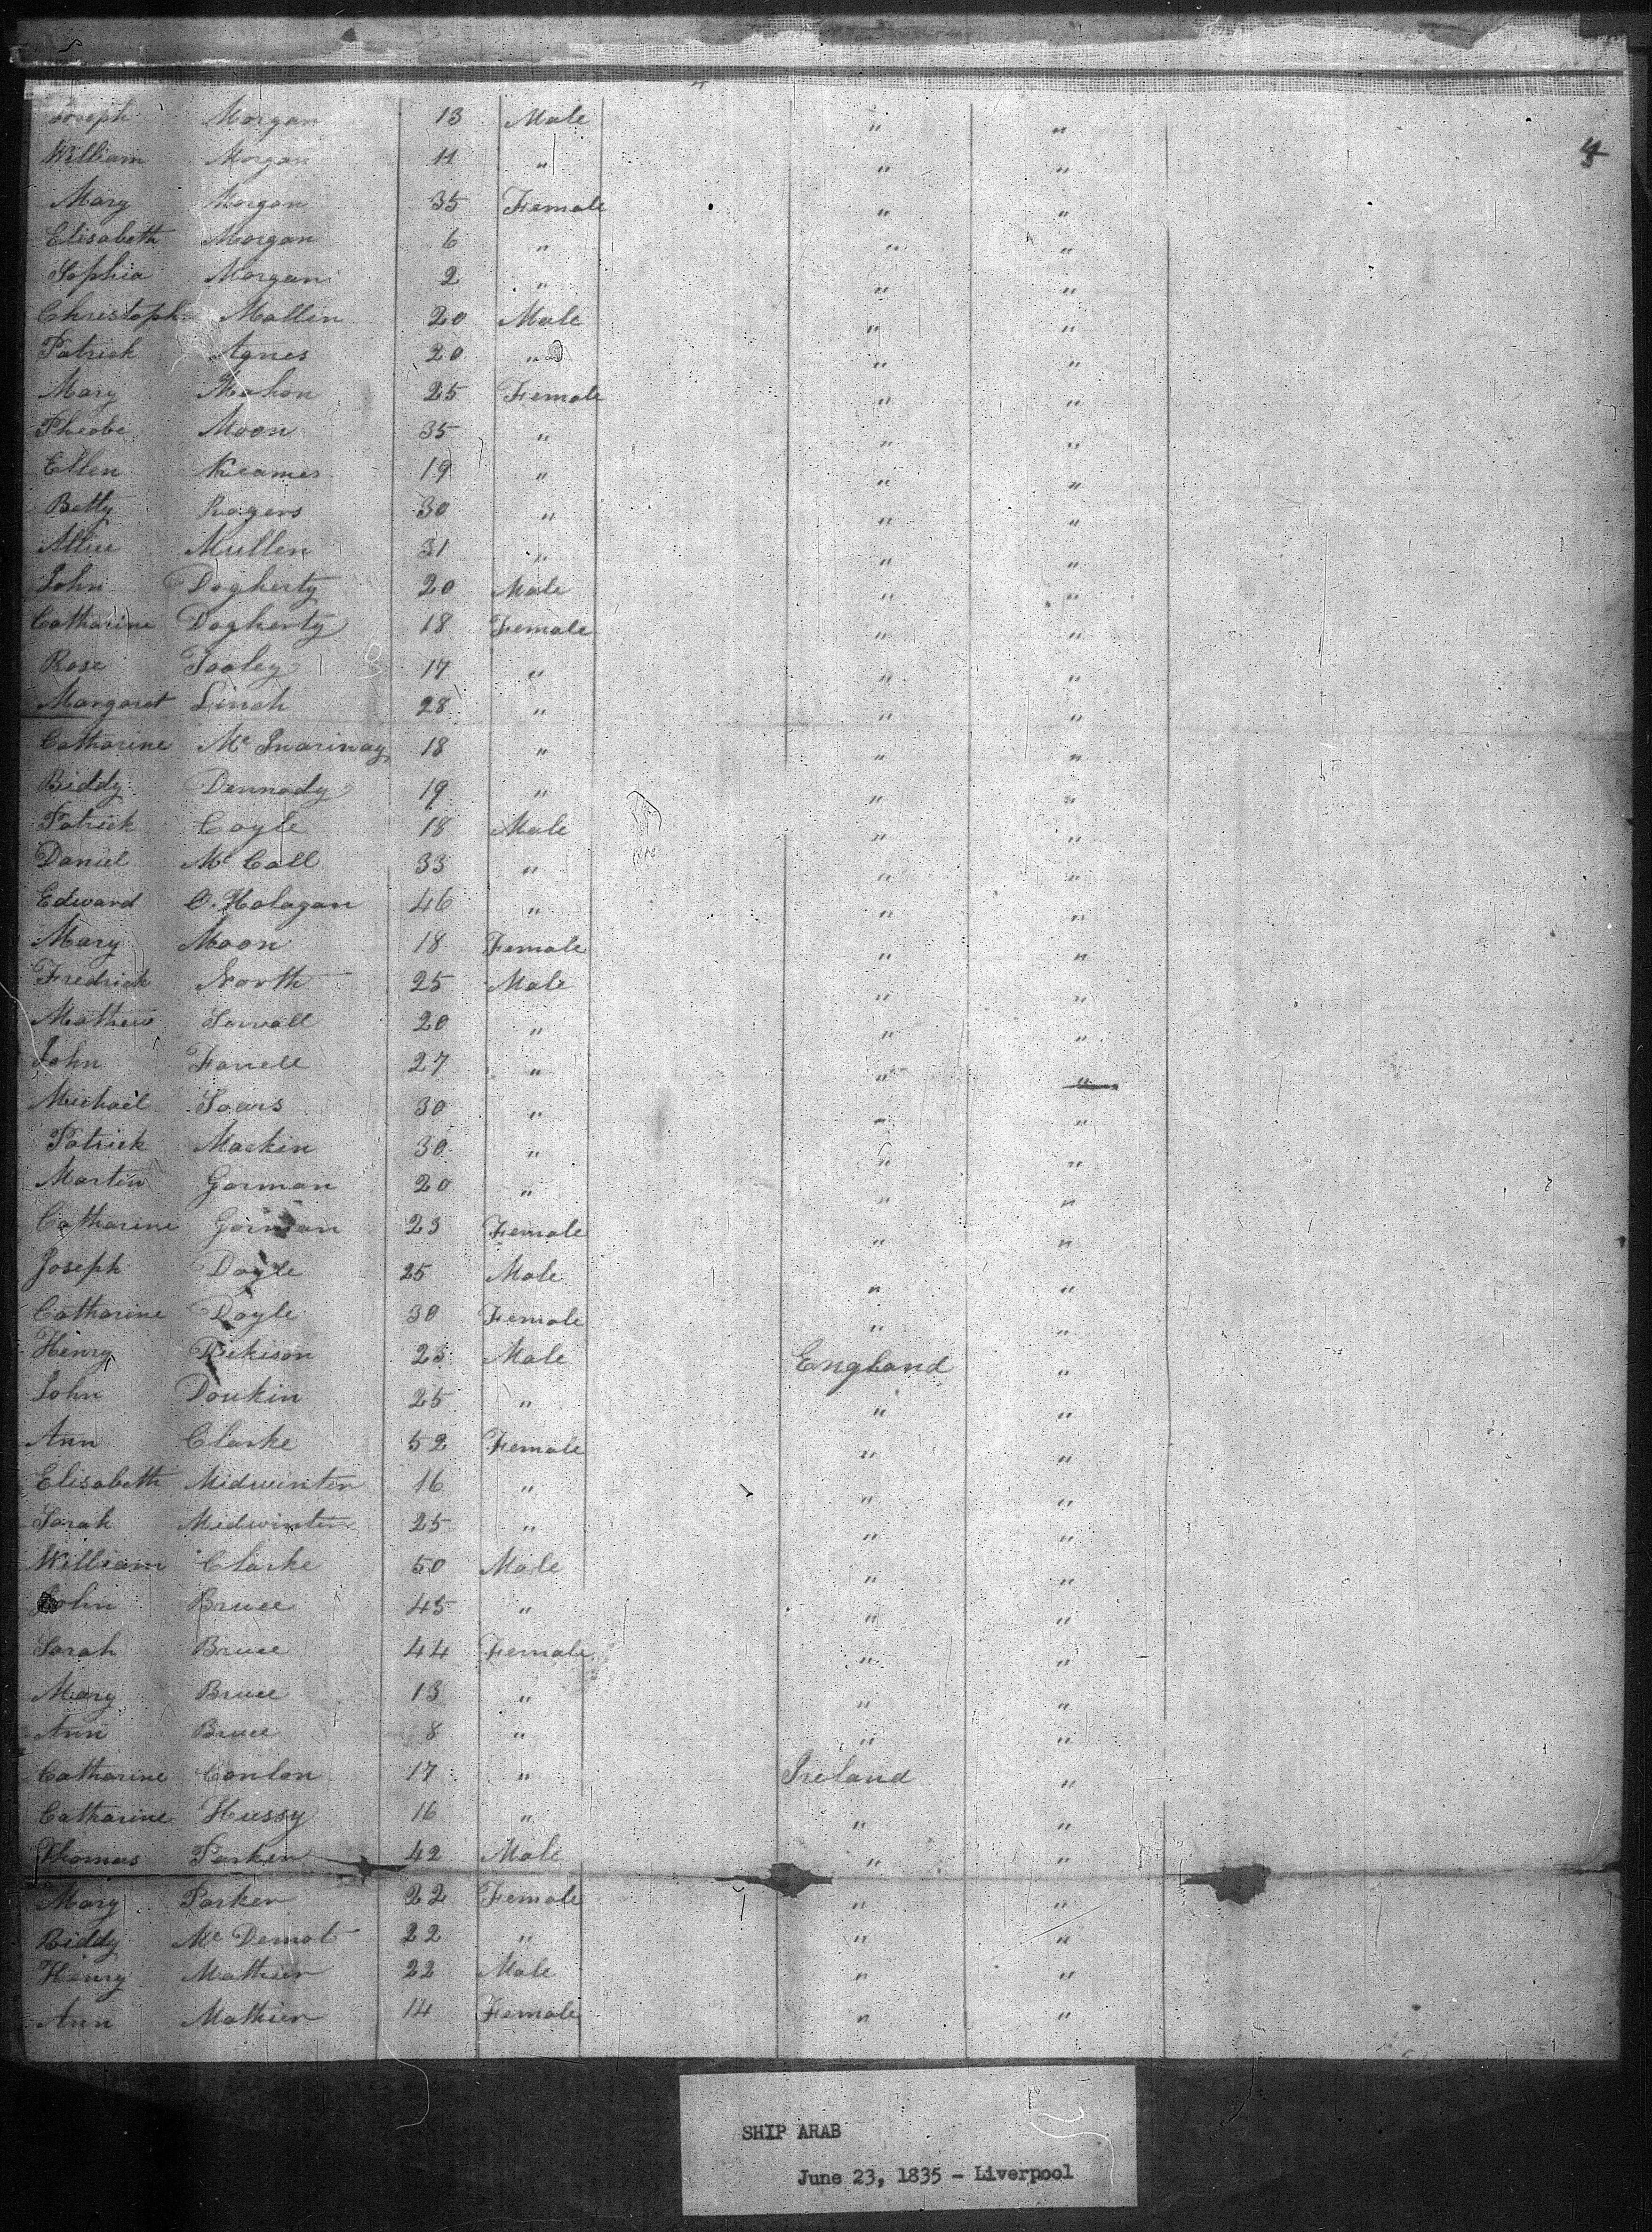 4
Joseph Morgan 13 Male " "
William Morgan 11 " " "
Mary Morgan 35 Female " "
Elisabeth Morgan 6 " " "
Sophia Morgan 2 " " "
Christoph Mallin 20 Male " "
Patrick Agnes 20 " " "
Mary Mahon 25 Female " "
Pheobe Moon 35 " " "
Ellen Keames 19 " " "
Betty Rogers 30 " " "
Allice Mullen 31 " " "
John Dogherty 20 Male " "
Catharine Dogherty 18 Female " "
Rose Tooley 17 " " "
Margaret Linch 28 " " "
Catharine Mc 18 " " "
Biddy Dennody 19 " " "
Patrick Coyle 18 Male " "
Daniel Mc Call 33 " " "
Edward O. Holagan 46 " " "
Mary Moon 18 Female " "
Fredrick North 25 Male " "
Mathew 20 " " "
John Farrell 27 " " "
Michael Soars 30 " " "
Patrick Mackin 30 " " "
Martin Gorman 20 " " "
Catharine Gorman 23 Female " "
Joseph Doyle 25 Male " "
Catharine Doyle 30 Female " "
Henry Dickison 23 Male England "
John Doukin 25 " " "
Ann Clarke 52 Female " "
Elisabeth Midwinter 16 " " "
Sarah Midwinter 25 " " "
William Clarke 50 Male " "
John Bruce 45 " " "
Sarah Bruce 44 Female " "
Mary Bruce 13 " " "
Ann Bruce 8 " " "
Catharine Conlon 17 " Ireland "
Catharine Hussy 16 " " "
Thomas Parker 42 Male " "
Mary Parker 22 Female " "
Biddy Mc Demot 22 " " "
Henry Mathier 22 Male " "
Ann Mathier 14 Female " "
SHIP ARAB
June 23, 1835 - Liverpool